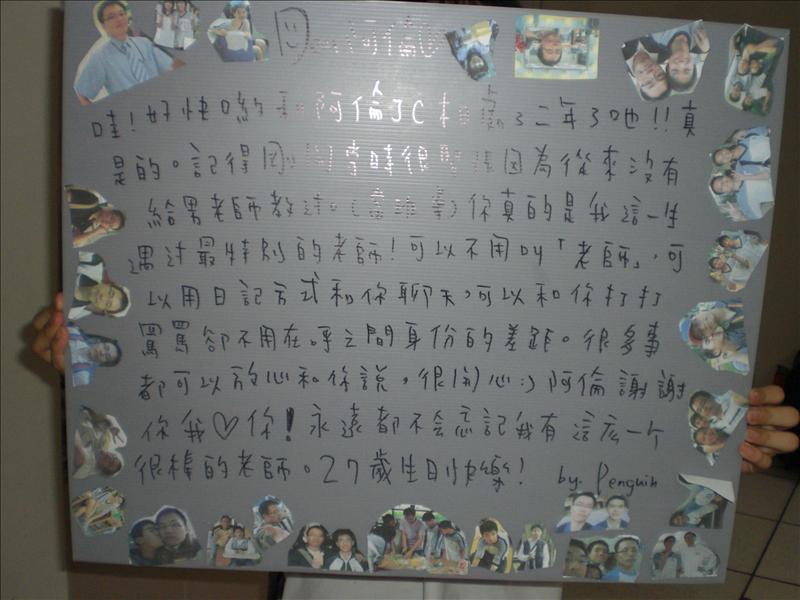 阿倫
哇!好快喲 阿倫JC相處了二年了吔!!真
是的。記得剛開學時很 因為從來沒有
給男老師教過。( )你真的是我這一生
遇過最特別的老師!可以不用叫「老師」,可
以用日記方式和你聊天,可以和你打打
罵罵卻不用在乎之間身份的差距。很多事
都可以放心和你說,很開心:)阿倫謝謝
你我♡你!永遠都不会忘記我有這広一个
很棒的老師。27歲生日快樂! by. Penguin